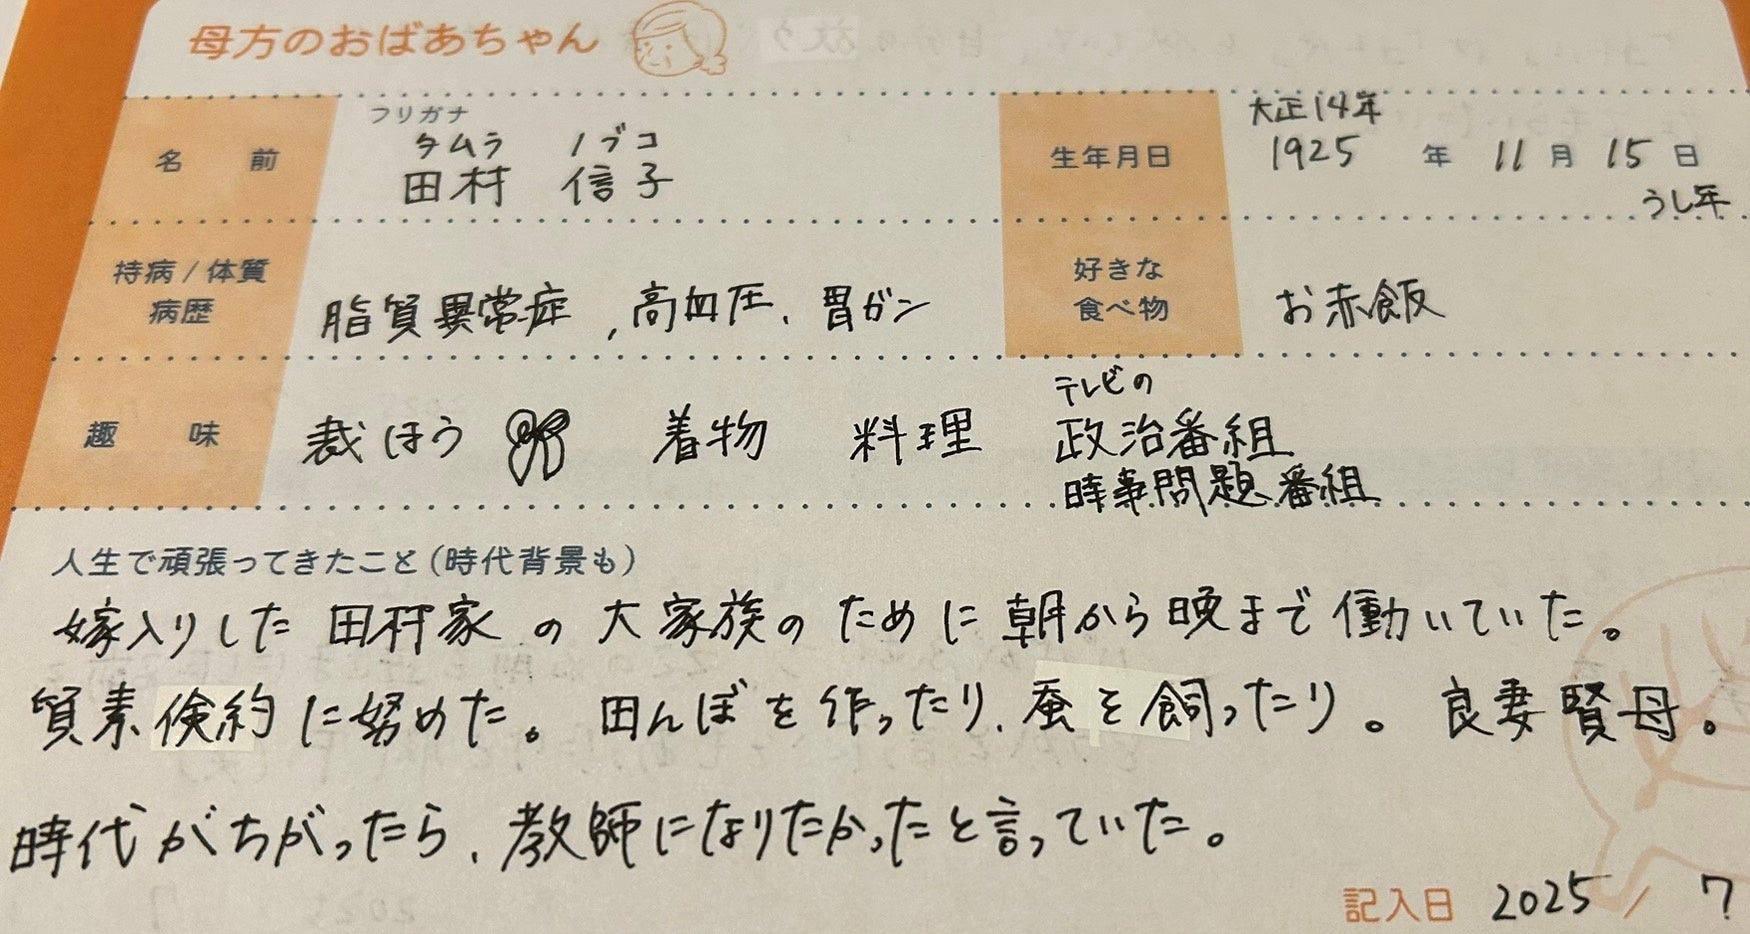 母方のおばあちゃん
フリガナ
タムラ ノブコ
名前 田村 信子
大正14年
生年月日 1925年 11月 15日
うし年
持病/体質
病歴
脂質異常症、高血圧、胃ガン
好きな
食べ物
お赤飯
趣味
裁ほう 着物 料理
テレビの
政治番組
時事問題番組
人生で頑張ってきたこと(時代背景も)
嫁入りした田村家の大家族のために朝から晩まで働いていた。
質素倹約に努めた。田んぼを作ったり、蚕を飼ったり。良妻賢母。
時代がちがったら、教師になりたかったと言っていた。
記入日 2025 / 7